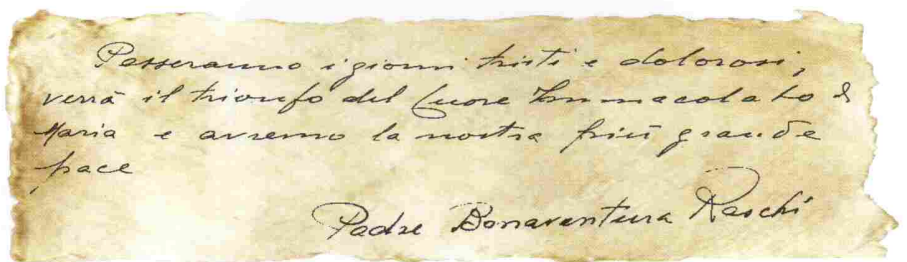 Passeranno i giorni tristi e dolorosi,
verrà il trionfo del Cuore Immacolato di
Maria e avremo la nostra più grande
pace
Padre Bonaventura Raschi